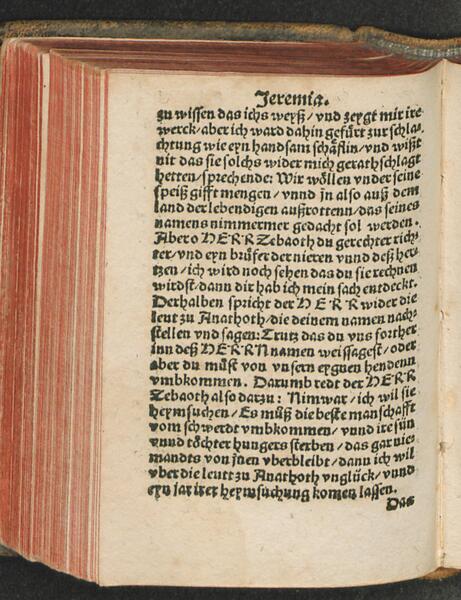 Jeremia.
zu wissen das ichs weyß / vnd zeygt mir ire
werck / aber ich ward dahin gefürt zur schla-
chtung wie eyn handsam schäflin / vnd wißt
nit das sie solchs wider mich gerathschlagt
hetten / sprechende: Wir wöllen vnder seine
speiß gifft mengen / vnnd jn also auß dem
land der lebendigen außrottenn / das seines
namens nimmermer gedacht sol werden.
Aber o HERR Zebaoth du gerechter rich-
ter / vnd eyn brüfer der nieren vnnd deß her-
tzen / ich wird noch sehen das du sie rechnen
wirdst / dann dir hab ich mein sach entdeckt.
Derhalben spricht der HERR wider die
leut zu Anathoth / die deinem namen nach-
stellen vnd sagen: Trutz das du vns forther
inn deß HERRN namen weissagest / oder
aber du müst von vnsern eygnen hendenn
vmbkommen. Darumb redt der HERR
Zebaoth also darzu: Nimwar / ich wil sie
heymsuchen / Es müß die beste manschafft
vom schwerdt vmbkommen / vnnd ire sün
vnnd töchter hungers sterben / das gar nie-
mandts von jnen vberbleibt / dann ich wil
vber die leutt zu Anathoth vnglück / vnnd
eyn jar irer heymsuchung komen lassen.
Das